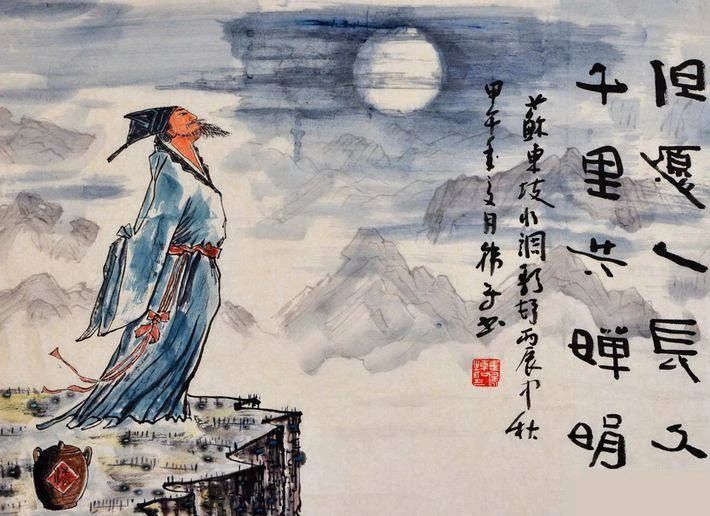 但愿人長久
千里共嬋娟
蘇東坡水調歌頭丙辰中秋
甲午 月 書
酒